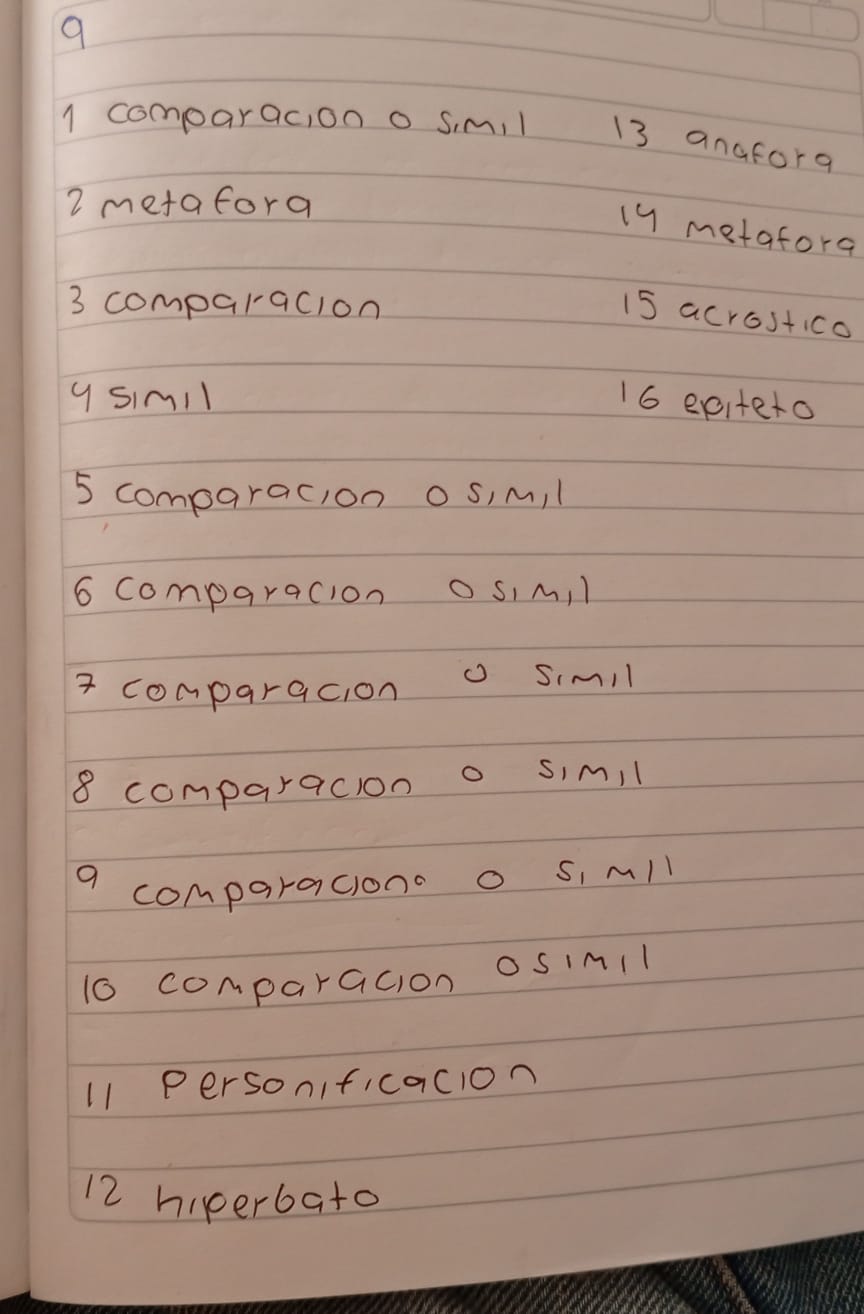 9
1 comparacion o simil
2 metafora
3 comparacion
4 simil
5 comparacion o simil
6 comparacion o simil
7 comparacion o simil
8 comparacion o simil
9 comparacion o simil
10 comparacion o simil
11 Personificacion
12 hiperbato
13 anafora
14 metafora
15 acrostico
16 epiteto